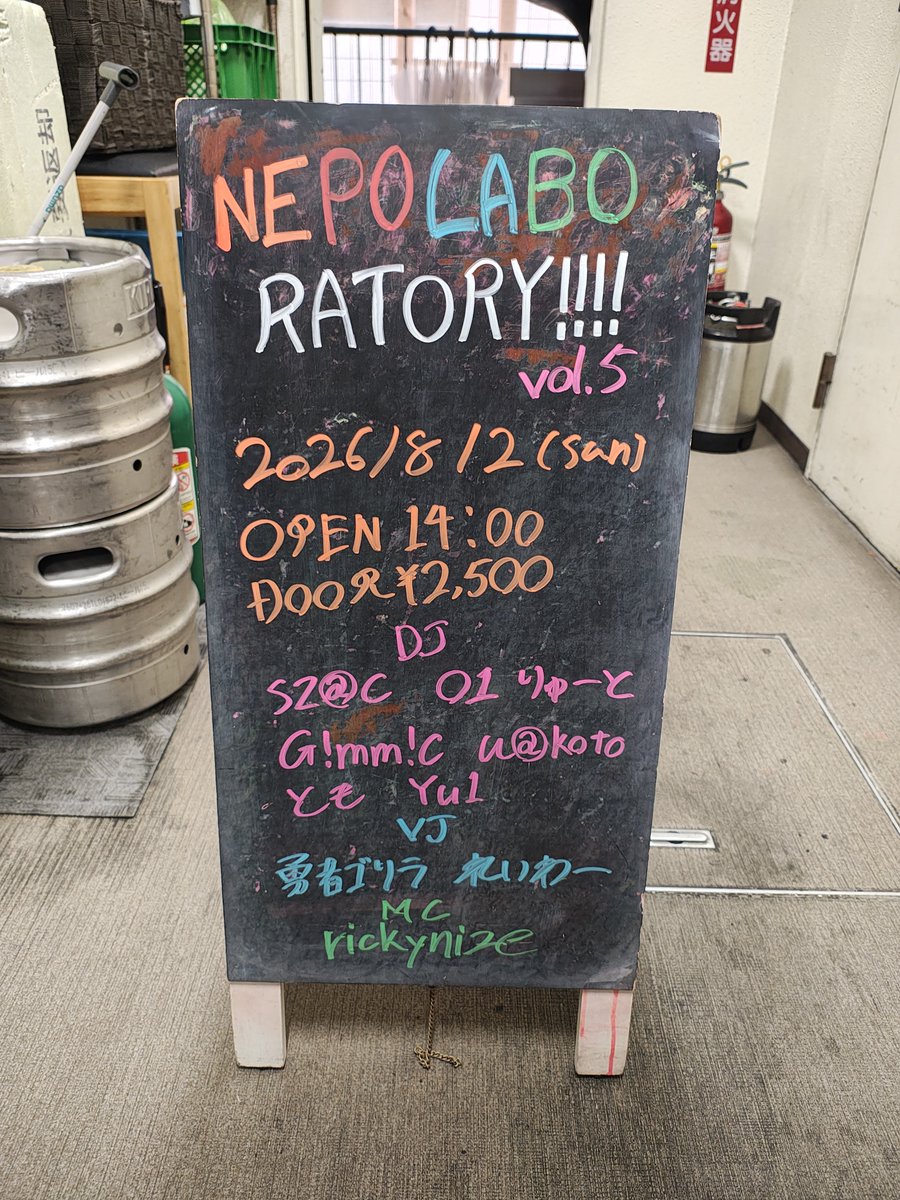 消火器
返却
NEPOLABO
RATORY!!!!
vol.5
2026/8/2(sun)
OPEN 14:00
DOOR ¥2,500
DJ
SZ@C 01 りゅーと
G!mm!C u@koto
とも Yu1
VJ
勇者ゴリラ れいわー
MC
rickynize